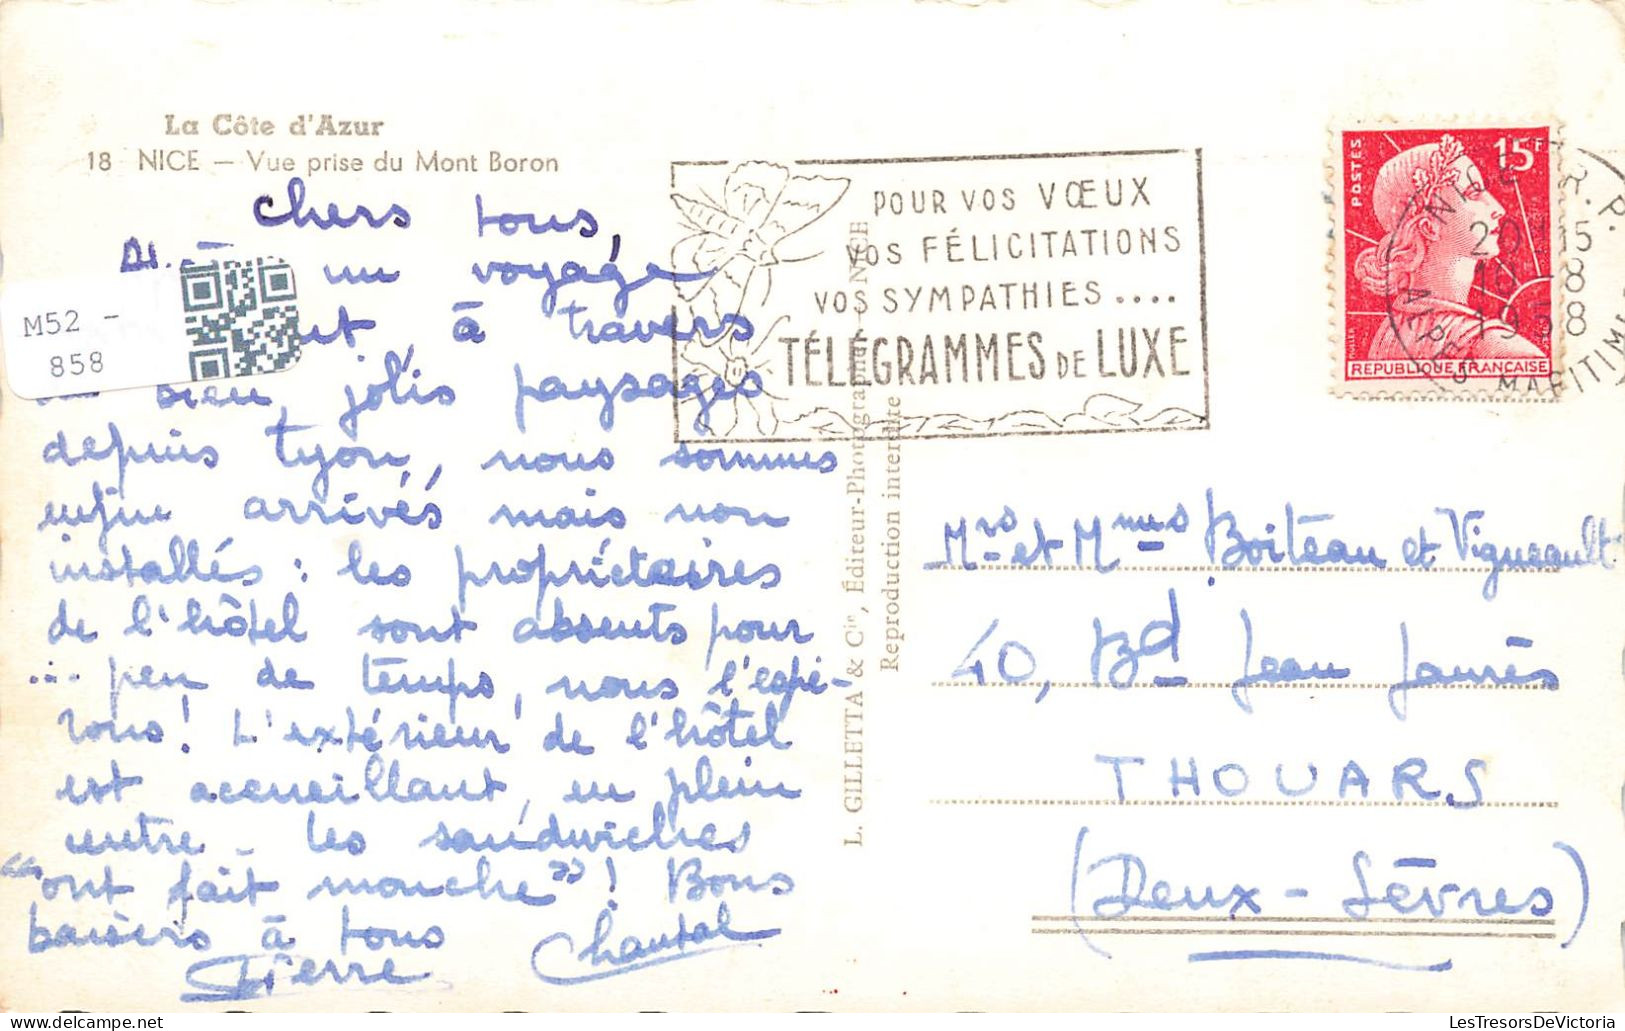 La Côte d'Azur
18 NICE — Vue prise du Mont Boron
chers tous,
un voyage
à travers
jolis paysages
depuis Lyon, nous sommes
enfin arrivés mais non
installés : les propriétaires
de l'hôtel sont absents pour
... peu de temps, nous l'espé-
rons! L'extérieur de l'hôtel
est accueillant, en plein
centre. Les sandwiches
"ont fait mouche"! Bons
baisers à tous
Pierre Chantal
M52 -
858
POUR VOS VŒUX
VOS FÉLICITATIONS
VOS SYMPATHIES ....
TÉLÉGRAMMES DE LUXE
L. GILLETTA & Cie, Éditeur-Photographe, NICE
Reproduction interdite
POSTES
15F
REPUBLIQUE FRANÇAISE
NICE R.P.
20 H 15
10 - 8
1958
ALPES MARITIMES
Mrs et Mmes Boiteau et Vigneault
40, Bd Jean Jaurès
THOUARS
(Deux-Sèvres)
LesTresorsDeVictoria